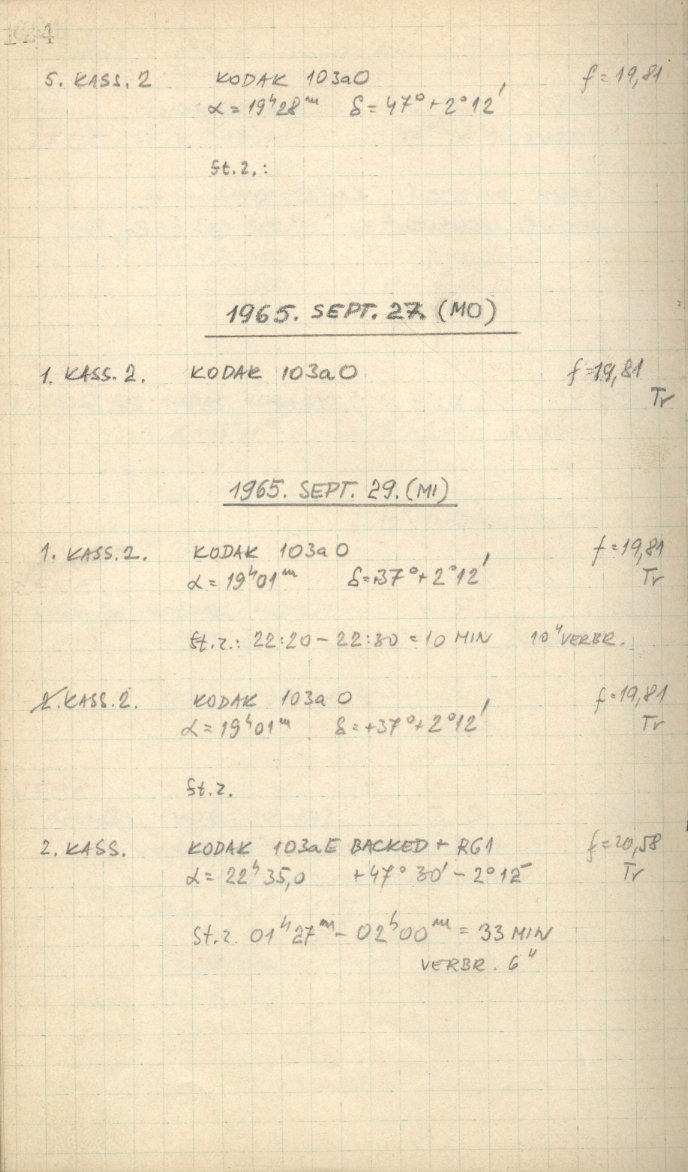 5. KASS. 2 KODAK 103aO f = 19,81
α = 19ʰ28ᵐ δ = 47° + 2°12'
St.z.:
1965. SEPT. 27. (MO)
1. KASS. 2. KODAK 103aO f = 19,81
Tr
1965. SEPT. 29. (MI)
1. KASS. 2. KODAK 103aO f = 19,81
α = 19ʰ01ᵐ δ = +37° + 2°12' Tr
St.z.: 22:20 – 22:30 = 10 MIN 10" VERBR.
2. KASS. 2. KODAK 103aO f = 19,81
α = 19ʰ01ᵐ δ = +37° + 2°12' Tr
St.z.
2. KASS. KODAK 103aE BACKED + RG1 f = 20,58
α = 22ʰ35,0 +47° 30' – 2°12' Tr
St.z. 01ʰ27ᵐ – 02ʰ00ᵐ = 33 MIN
VERBR. 6"